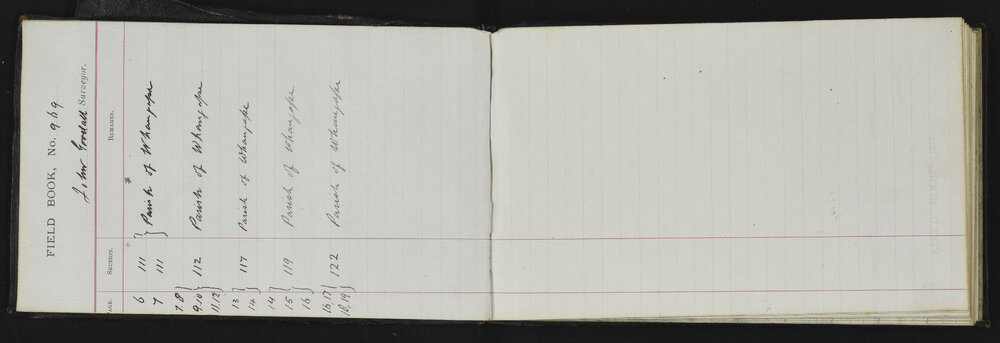 FIELD BOOK, No. 969
John Goodall Surveyor.
PAGE. SECTION. REMARKS.
6 111 } Parish of Whangape
7 111 }
7.8 }
9.10 } 112 Parish of Whangape
11.12 }
13 } 117 Parish of Whangape
14 }
14 }
15 } 119 Parish of Whangape
16 }
16,17 } 122 Parish of Whangape
18,19 }